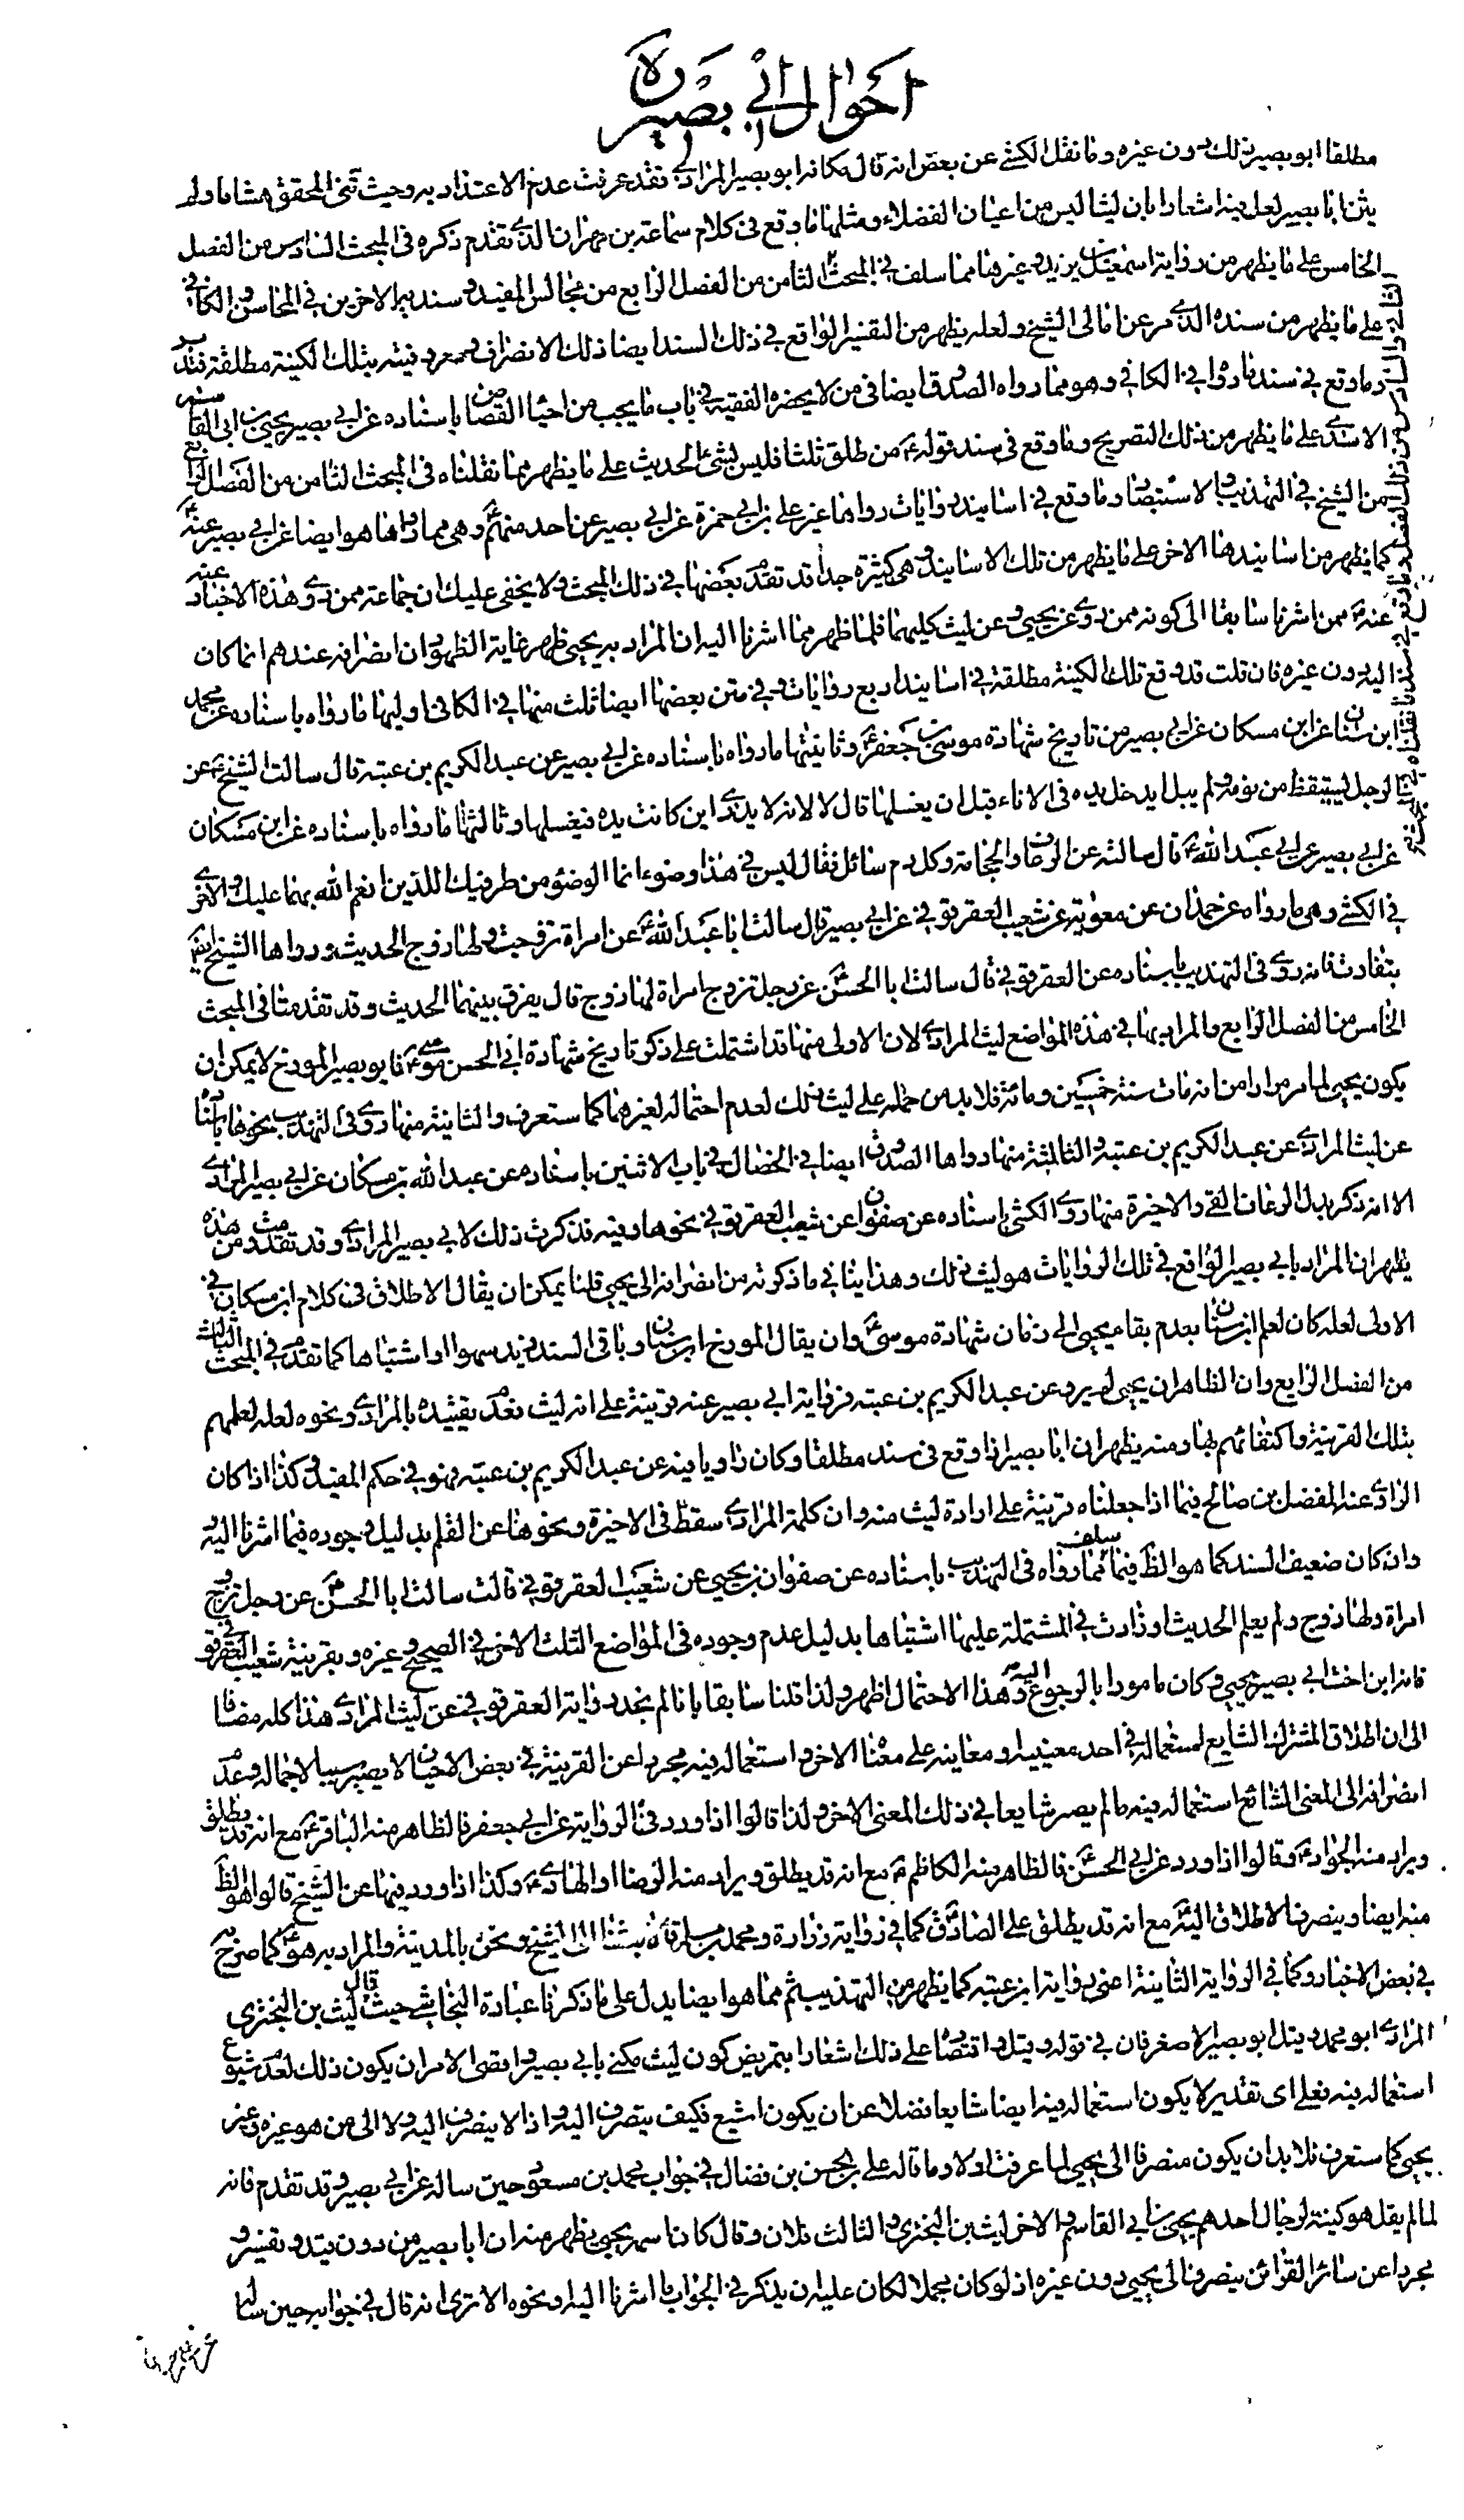 احوال ابي بصير
مطلقا ابو بصير ذلك دون غيره وما نقل الكشي عن بعض انه قال مكانه ابو بصير المرادي فقد عرفت عدم الاعتداد به وحيث ثنى المحقق هشاما ولم
يثن ابا بصير لعل فيه اشعارا بان ليثا ليس من اعيان الفضلاء ومثلها ما وقع في كلام سماعة بن مهران الذي تقدم ذكره في المبحث السادس من الفصل
الخامس على ما يظهر من رواية اسمعيل بن يزيد وغيرها مما سلف في المبحث الثامن من الفصل الرابع من مجالس المفيد وسند الاخرين في المحاسن والكافي
على ما يظهر من سنده الذي مر عن امالي الشيخ ولعله يظهر من التفسير الواقع في ذلك السند ايضا ذلك الانصراف ومعروفيته بتلك الكنية مطلقة
وما وقع في سند ما روا في الكافي وهو مما رواه الصدوق ايضا في من لا يحضره الفقيه في باب ما يجب من احياء القصاص باسناده عن ابي بصير يحيى بن ابي القاسم
الاسدي على ما يظهر من ذلك التصريح وما وقع في سند قوله ع من طلق ثلثا فليس بشئ الحديث على ما يظهر مما نقلناه في المبحث الثامن من الفصل الرابع
من الشيخ في التهذيب والاستبصار وما وقع في اسانيد روايات رواها غير علي بن ابي حمزة عن ابي بصير عن احد منهم ع وهي مما رواها هو ايضا عن ابي بصير عنه ع
كما يظهر من اسانيدها الاخر على ما يظهر من تلك الاسانيد وهي كثيرة جدا قد تقدم بعضها في ذلك المبحث ولا يخفى عليك ان جماعة ممن روى هذه الاخبار عنه
عنه ع ممن اشرنا سابقا الى كونه ممن روى عن يحيى وعن ليث كليهما فلما ظهر مما اشرنا اليه ان المراد به يحيى ظهر غاية الظهور ان انصرافه عندهم انما كان
اليه دون غيره فان قلت قد وقع تلك الكنية مطلقة في اسانيد اربع روايات وفي متن بعضها ايضا ثلث منها في الكافي اوليها ما رواه باسناده عن محمد
ابن سنان عن ابن مسكان عن ابي بصير من تاريخ شهادة موسى بن جعفر ع وثانيتها ما رواه باسناده عن ابي بصير عن عبد الكريم بن عتبة قال سالت الشيخ ع عن
الرجل يستيقظ من نومه ولم يبل ايدخل يده في الاناء قبل ان يغسلها قال لا لانه لا يدري اين كانت يده فيغسلها وثالثتها ما رواه باسناده عن ابن مسكان
عن ابي بصير عن ابي عبد الله ع قال سالته عن الرعاف والحجامة وكل دم سائل فقال ليس في هذا وضوء انما الوضوء من طرفيك اللذين انعم الله بهما عليك والاخرى
في الكشي وهي ما رواه عن حمدان عن معوية عن شعيب العقرقوفي عن ابي بصير قال سالت ابا عبد الله ع عن امراة تزوجت ولها زوج الحديث ورواها الشيخ ايضا
بتفاوت فانه روى في التهذيب باسناده عن العقرقوفي قال سالت ابا الحسن ع عن رجل تزوج امراة لها زوج قال يفرق بينهما الحديث وقد تقدمتا في المبحث
الخامس من الفصل الرابع والمراد بها في هذه المواضع ليث المرادي لان الاولى منها قد اشتملت على ذكر تاريخ شهادة ابي الحسن موسى ع فابو بصير المورخ لا يمكن ان
يكون يحيى لما مر مرارا من انه مات سنة خمسين ومائة فلا بد من حمله على ليث ذلك لعدم احتماله لغيرهما كما ستعرف والثانية منها روى في التهذيب نحوها باسناده
عن ليث المرادي عن عبد الكريم بن عتبة والثالثة منها رواها الصدوق ايضا في الخصال في باب الاثنين باسناده عن عبد الله بن مسكان عن ابي بصير المرادي
الا انه ذكر بدل الرعاف القئ والاخيرة منها روى الكشي باسناده عن صفوان عن شعيب العقرقوفي نحوها وفيه فذكرت ذلك لابي بصير المرادي وقد تقدمت من هذه
يظهر ان المراد بابي بصير الواقع في تلك الروايات هو ليث ذلك وهذا ينافي ما ذكرته من انصرافه الى يحيى قلنا يمكن ان يقال الاطلاق في كلام ابن مسكان في
الاولى لعله كان لعلم ابن سنان بعدم بقاء يحيى الى زمان شهادة موسى ع وان يقال المورخ ابن سنان وباقي السند زيد سهوا او اشتباها كما تقدم في المبحث الثالث
من الفصل الرابع وان الظاهر ان يحيى لم يرو عن عبد الكريم بن عتبة فرواية ابي بصير عنه قرينة على انه ليث فعدم تقييده بالمرادي ونحوه لعله لعلمهم
بتلك القرينة واكتفائهم بها ومنه يظهر ان ابا بصير اذا وقع في سند مطلقا وكان راويا فيه عن عبد الكريم بن عتبة فهو في حكم المقيد وكذا اذا كان
الراوي عنه المفضل بن صالح فيما اذا جعلناه قرينة على ارادة ليث منه وان كلمة المرادي سقط في الاخيرة ونحوها عن القلم بدليل وجوده فيما اشرنا اليه
وان كان ضعيف السند كما هو الظ فيما سلف مما رواه في التهذيب باسناده عن صفوان بن يحيى عن شعيب العقرقوفي قالت سالت ابا الحسن ع عن رجل تزوج
امراة ولها زوج ولم يعلم الحديث او زادت في المشتملة عليها اشتباها بدليل عدم وجوده في المواضع الثلث الاخر في الصحيح وغيره وبقرينة شعيب العقرقوفي
فانه ابن اخت ابي بصير يحيى وكان مامورا بالرجوع اليه وهذا الاحتمال اظهر ولذا قلنا سابقا بانا لم نجد رواية العقرقوفي عن ليث المرادي هذا كله مضافا
الى ان اطلاق المشترك الشايع استعماله في احد معنييه او معانيه على معناه الاخر واستعماله فيه مجردا عن القرينة في بعض الاحيان لا يصير سببا لاجماله وعدم
انصرافه الى المعنى الشائع استعماله فيه ما لم يصر شايعا في ذلك المعنى الاخر ولذا قالوا اذا ورد في الرواية عن ابي جعفر فالظاهر منه الباقر ع مع انه قد يطلق
ويراد منه الجواد ع وقالوا اذا ورد عن ابي الحسن ع فالظاهر منه الكاظم ع مع انه قد يطلق ويراد منه الرضا او الهادي ع وكذا اذا ورد فيها عن الشيخ قالوا هو الظ
منه ايضا وينصرف الاطلاق اليه ع مع انه قد يطلق على الصادق ع كما في رواية زرارة ومحمد بن مسلم قالا بعثنا الى الشيخ ونحن بالمدينة والمراد به هو ع كما صرح به
في بعض الاخبار وكما في الرواية الثانية اعني رواية ابن عتبة كما يظهر من التهذيب ثم مما هو ايضا يدل على ما ذكرنا عبارة النجاشي حيث قال ليث بن البختري
المرادي ابو محمد وقيل ابو بصير الاصغر فان في قوله وقيل واقتصاره على ذلك اشعارا بتمريض كون ليث مكنى بابي بصير واقصى الامر ان يكون ذلك لعدم شيوع
استعماله فيه فعلى اي تقدير لا يكون استعماله فيه ايضا شايعا فضلا عن ان يكون اشيع فكيف يتصرف اليه واذا لا ينصرف اليه ولا الى من هو غيره وغير
يحيى كما ستعرف فلا بد ان يكون منصرفا الى يحيى لما عرفت اولا وما قاله علي بن الحسن بن فضال في جواب محمد بن مسعود حين ساله عن ابي بصير وقد تقدم فانه
لما لم يقل هو كنية لرجال احدهم يحيى بن ابي القاسم والاخر ليث بن البختري والثالث فلان وقال كان اسمه يحيى يظهر منه ان ابا بصير من دون قيد وتفسير و
مجردا عن سائر القرائن ينصرف الى يحيى دون غيره اذ لو كان مجملا لكان عليه ان يذكر في الجواب ما اشرنا اليه ونحوه الا ترى انه قال في جوابه حين ساله